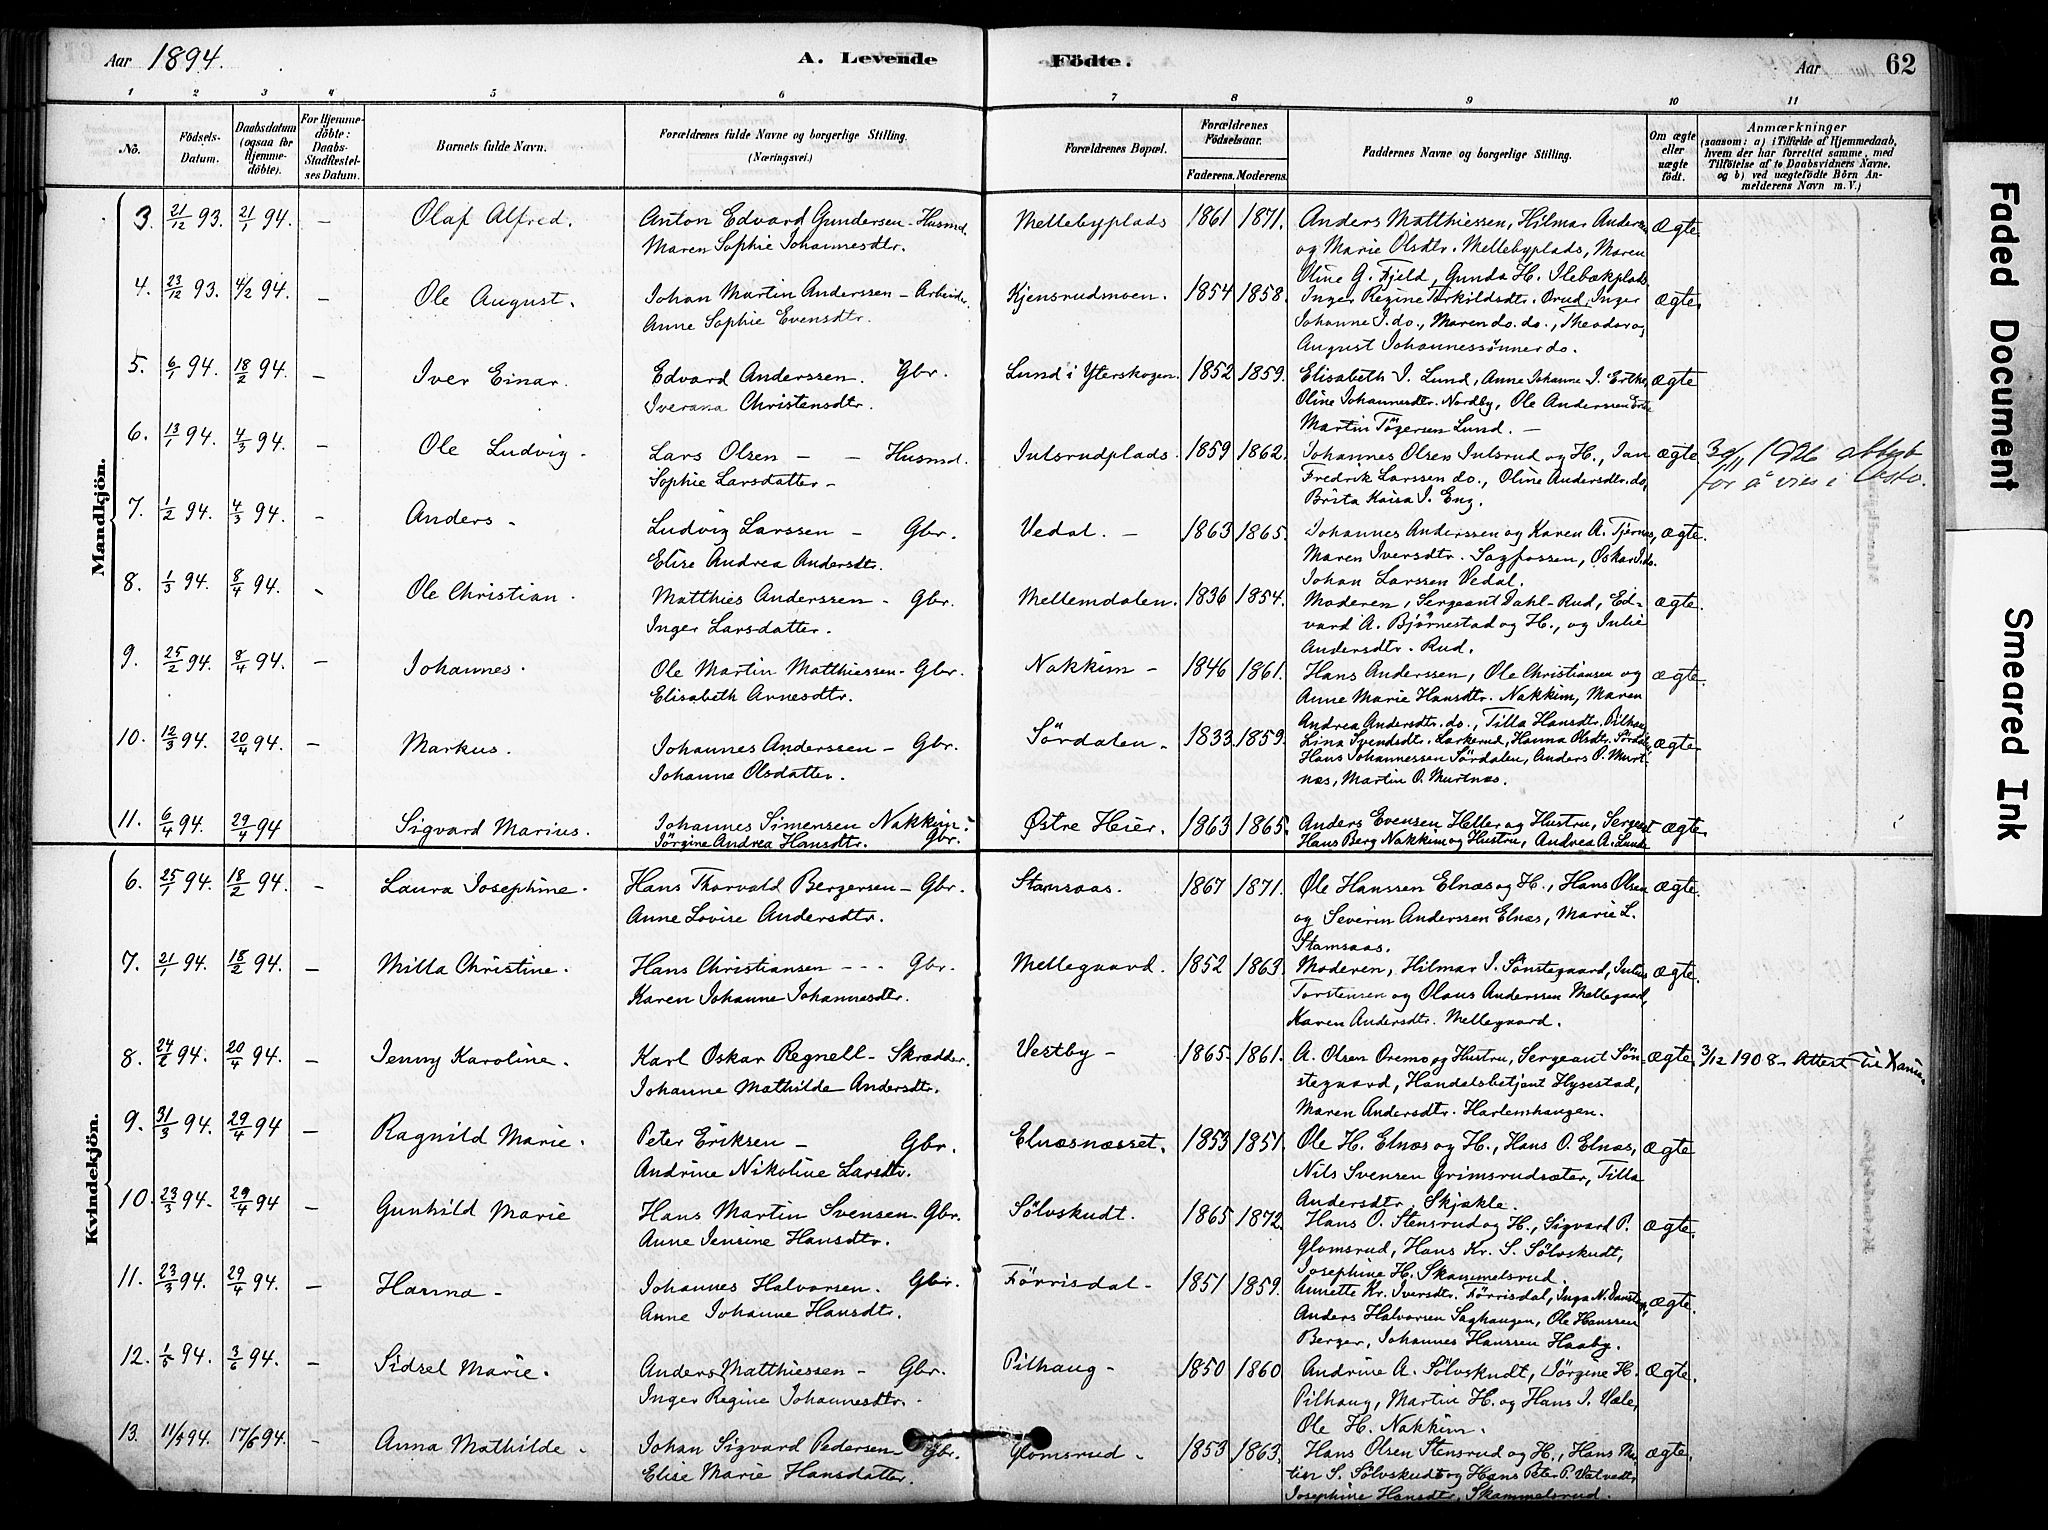 Aar 1894. A. Levende Födte. Aar 62
1 2 3 4 5 6 7 8 9 10 11
No. Födsels-Datum. Daabsdatum (ogsaa for Hjemmedöbte). For Hjemmedöbte: Daabs-Stadfæstelses Datum. Barnets fulde Navn. Forældrenes fulde Navne og borgerlige Stilling. (Næringsvei.) Forældrenes Bopæl. Forældrenes Födselsaar. Faderens. Moderens. Faddernes Navne og borgerlige Stilling. Om ægte eller uægte födt. Anmærkninger (saasom: a) i Tilfælde af Hjemmedaab, hvem der har forrettet samme, med Tilföielse af to Daabsvidners Navne. og b) ved uægtefödte Börn Anmelderens Navn m. V.)
Mandkjön.
3. 21/12 93. 21/1 94. – Olaf Alfred. Anton Edvard Gundersen – Husmd. Mellebyplads 1861 1871. Anders Matthiessen, Hilmar Anderssen ægte.
Maren Sophie Johannesdtr. og Marie Olsdtr. Mellebyplads, Maren
Oline G. Fjeld, Gunda H. Ilebækplads
4. 23/12 93. 4/2 94. – Ole August. Johan Martin Anderssen – Arbeider. Kjensrudmoen. 1854 1858. Inger Regine Torkildsdtr. Ørud, Inger ægte.
Anne Sophie Evensdtr. Johanne J. do., Maren do. do., Theodor og
August Johannessønner do.
5. 6/1 94. 18/2 94. – Iver Einar. Edvard Anderssen. Gbr. Lund i Ytterskogen. 1852 1859. Elisabeth J. Lund, Anne Johanne I. Erthe, ægte
Iverana Christensdtr. Oline Johannesdtr. Nordby, Ole Anderssen Erthe
Martin Tögersen Lund. –
6. 13/1 94. 4/3 94. – Ole Ludvig. Lars Olsen – – Husmd. Julsrudplads. 1859 1862. Johannes Olsen Julsrud og H., Jan ægte. 30/11 1926 attest
Sophie Larsdatter – Fredrik Larssen do., Oline Andersdtr. do, for å vies i Oslo.
Brita Kaisa J. Eng.
7. 1/2 94. 4/3 94. – Anders – Ludvig Larssen – Gbr. Vedal. – 1863 1865. Johannes Anderssen og Karen A. Tjernes, ægte.
Elise Andrea Andersdt. Maren Iversdtr. Sagfossen, Oskar I. do.
Johan Larssen Vedal.
8. 1/3 94. 8/4 94. – Ole Christian. Matthies Anderssen – Gbr. Mellemdalen. 1836 1854. Moderen, Sergeant Dahl-Rud, Ed- ægte.
Inger Larsdatter. vard A. Bjørnestad og H., og Julie
Andersdtr. Rud.
9. 25/2 94. 8/4 94. – Johannes. Ole Martin Matthiessen – Gbr. Nakkim – 1846 1861. Hans Anderssen, Ole Christiansen og ægte.
Elisabeth Arnesdtr. Anne Marie Hansdtr. Nakkim, Maren
Andrea Andersdtr. do., Tilla Hansdtr. Pilhaug
10. 12/3 94. 20/4 94. – Markus. Johannes Anderssen – Gbr. Sördalen – 1833 1859. Lina Svendsdtr. Larkerud, Hanna Olsdtr. Sördalen, ægte.
Johanne Olsdatter. Hans Johannessen Sördalen, Anders O. Murt-
næs, Martin O. Murtnæs.
11. 6/4 94. 29/4 94 Sigvard Marius. Johannes Simensen Nakkim. Østre Heier. 1863 1865. Anders Evensen Heller og Hustru, Sergeant ægte.
Jörgine Andrea Hansdtr. Gbr. Hans Berg Nakkim og Hustru, Andrea A. Lunde
Kvindekjön.
6. 25/1 94. 18/2 94. – Laura Josephine. Hans Thorvald Bergersen – Gbr. Stamsaas. 1867 1871. Ole Hanssen Elnæs og H., Hans Olsen ægte.
Anne Lovise Andersdtr. og Severin Anderssen Elnæs, Marie L.
Stamsaas.
7. 21/1 94. 18/2 94. – Milla Christine. Hans Christiansen – – – Gbr. Mellegaard. 1852 1863. Moderen, Hilmar I. Sønstegaard, Julius ægte.
Karen Johanne Johannesdtr. Torstensen og Olaus Anderssen Mellegaard,
Karen Andersdtr. Mellegaard.
8. 24/2 94. 20/4 94. – Jenny Karoline. Karl Oskar Regnell – Skrædder. Vestby – 1865. 1861. A. Olsen Oremo og Hustru, Sergeant Søn- ægte. 3/12 1908 – Attest til
Johanne Mathilde Andersdtr. stegaard, Handelsbetjent Hysestad,
Maren Andersdtr. Harlemshaugen.
9. 31/3 94. 29/4 94 – Ragnild Marie. Peter Eriksen – Gbr. Elnæsnæsset. 1853 1851. Ole H. Elnæs og H., Hans O. Elnæs, ægte.
Andrine Nikoline Larsdtr. Nils Svensen Grimsrudsæter, Tilla
Andersdtr. Skjækle.
10. 23/3 94. 29/4 94 – Gunhild Marie Hans Martin Svensen. Gbr. Sölvskudt. 1865 1872. Hans O. Stensrud og H., Sigvard P. ægte.
Anne Jensine Hansdtr. Glomsrud, Hans Kr. S. Sölvskudt,
Josephine H. Skammelsrud.
11. 23/3 94. 29/4 94. – Hanna – Johannes Halvorsen. Gbr. Förrisdal – 1851 1859. Annette Kr. Iversdtr. Förrisdal, Inga N. ægte.
Anne Johanne Hansdtr. Anders Halvorsen Saghaugen, Ole Hanssen
Berger, Johannes Hanssen Haaby.
12. 1/5 94. 3/6 94. – Sidsel Marie. Anders Matthiessen – Gbr. Pilhaug – 1850 1860 Andrine A. Sölvskudt, Jörgine H. ægte.
Inger Regine Johannesdtr. Pilhaug, Martin H. og Hans J. Vale,
Ole H. Nakkim.
13. 11/5 94. 17/6 94. – Anna Mathilde – Johan Sigvard Pedersen – Gbr. Glomsrud – 1853 1863. Hans Olsen Stensrud og H., Hans Mar- ægte.
Elise Marie Hansdatter. tin S. Sölvskudt og Hans Peter P. Valvedt,
Josephine Hansdtr. Skammelsrud.
Faded Document
Smeared Ink